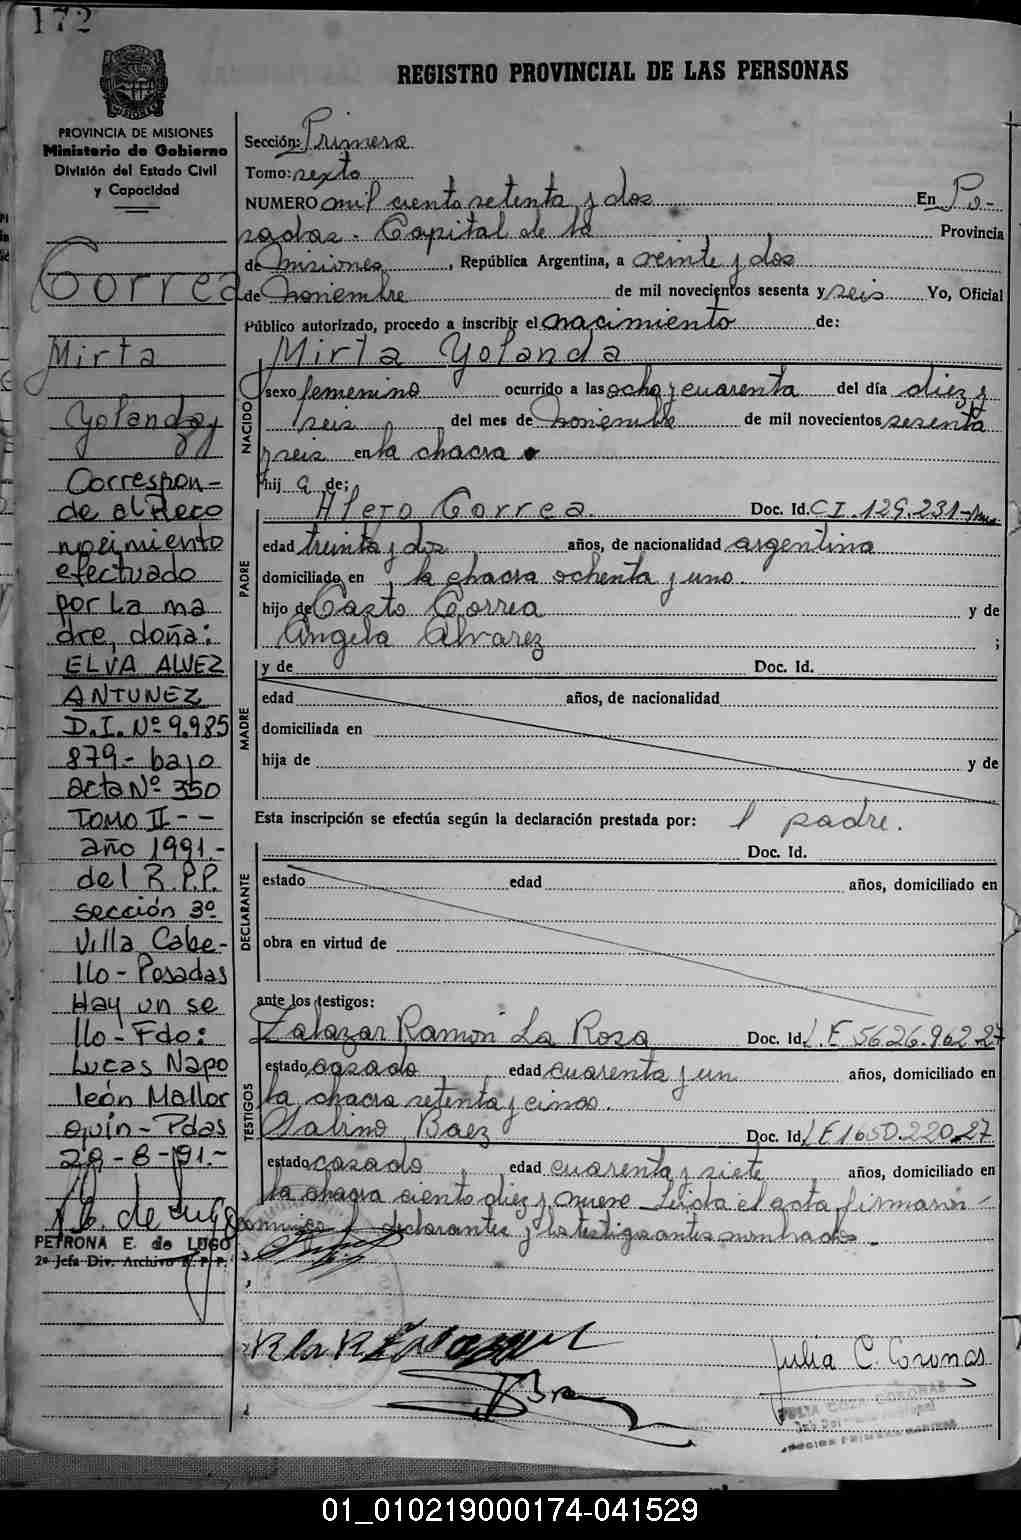 172
REGISTRO PROVINCIAL DE LAS PERSONAS
PROVINCIA DE MISIONES
Ministerio de Gobierno
División del Estado Civil
y Capacidad
Correa
Mirta
Yolanda
Correspon-
de al Reco
nocimiento
efectuado
por La ma
dre, doña:
ELVA ALVEZ
ANTUNEZ
D.I. Nº 9.985
879 - bajo
acta Nº 350
TOMO II - -
año 1991.-
del R.P.P.
sección 3º
Villa Cabe-
llo - Posadas
Hay un se
llo - Fdo:
Lucas Napo
león Mallor
quín - Pdas
29-8-91.-
PETRONA E. de LUGO
2º Jefa Div. Archivo R. P. P.
Sección: Primera
Tomo: sexto
NUMERO mil ciento setenta y dos En Po-
sadas - Capital de la Provincia
de Misiones, República Argentina, a veinte y dos
de Noviembre de mil novecientos sesenta y seis Yo, Oficial
Público autorizado, procedo a inscribir el nacimiento de:
Mirta Yolanda
NACIDO
sexo femenino ocurrido a las ocho y cuarenta del día diez y
seis del mes de Noviembre de mil novecientos sesenta
y seis en la chacra
hij a de:
PADRE
Alejo Correa. Doc. Id. C I. 129.231
edad treinta y dos años, de nacionalidad argentina
domiciliado en la chacra ochenta y uno.
hijo de Casto Correa y de
Angela Alvarez ;
MADRE
y de Doc. Id.
edad años, de nacionalidad
domiciliada en
hija de y de
Esta inscripción se efectúa según la declaración prestada por: l padre.
DECLARANTE
Doc. Id.
estado edad años, domiciliado en
obra en virtud de
ante los testigos:
TESTIGOS
Zalazar Ramón La Rosa Doc. Id. L.E 5626.962-27
estado casado edad cuarenta y un años, domiciliado en
la chacra setenta y cinco.
Sabino Baez Doc. Id. L E 1650.220.27
estado casado, edad cuarenta y siete años, domiciliado en
la chacra ciento diez y nueve - Leida el acta firmaron
conmigo l declarante y los testigos antes nombrados -
Julia C. Coronas
JULIA C. CORONAS
01_010219000174-041529